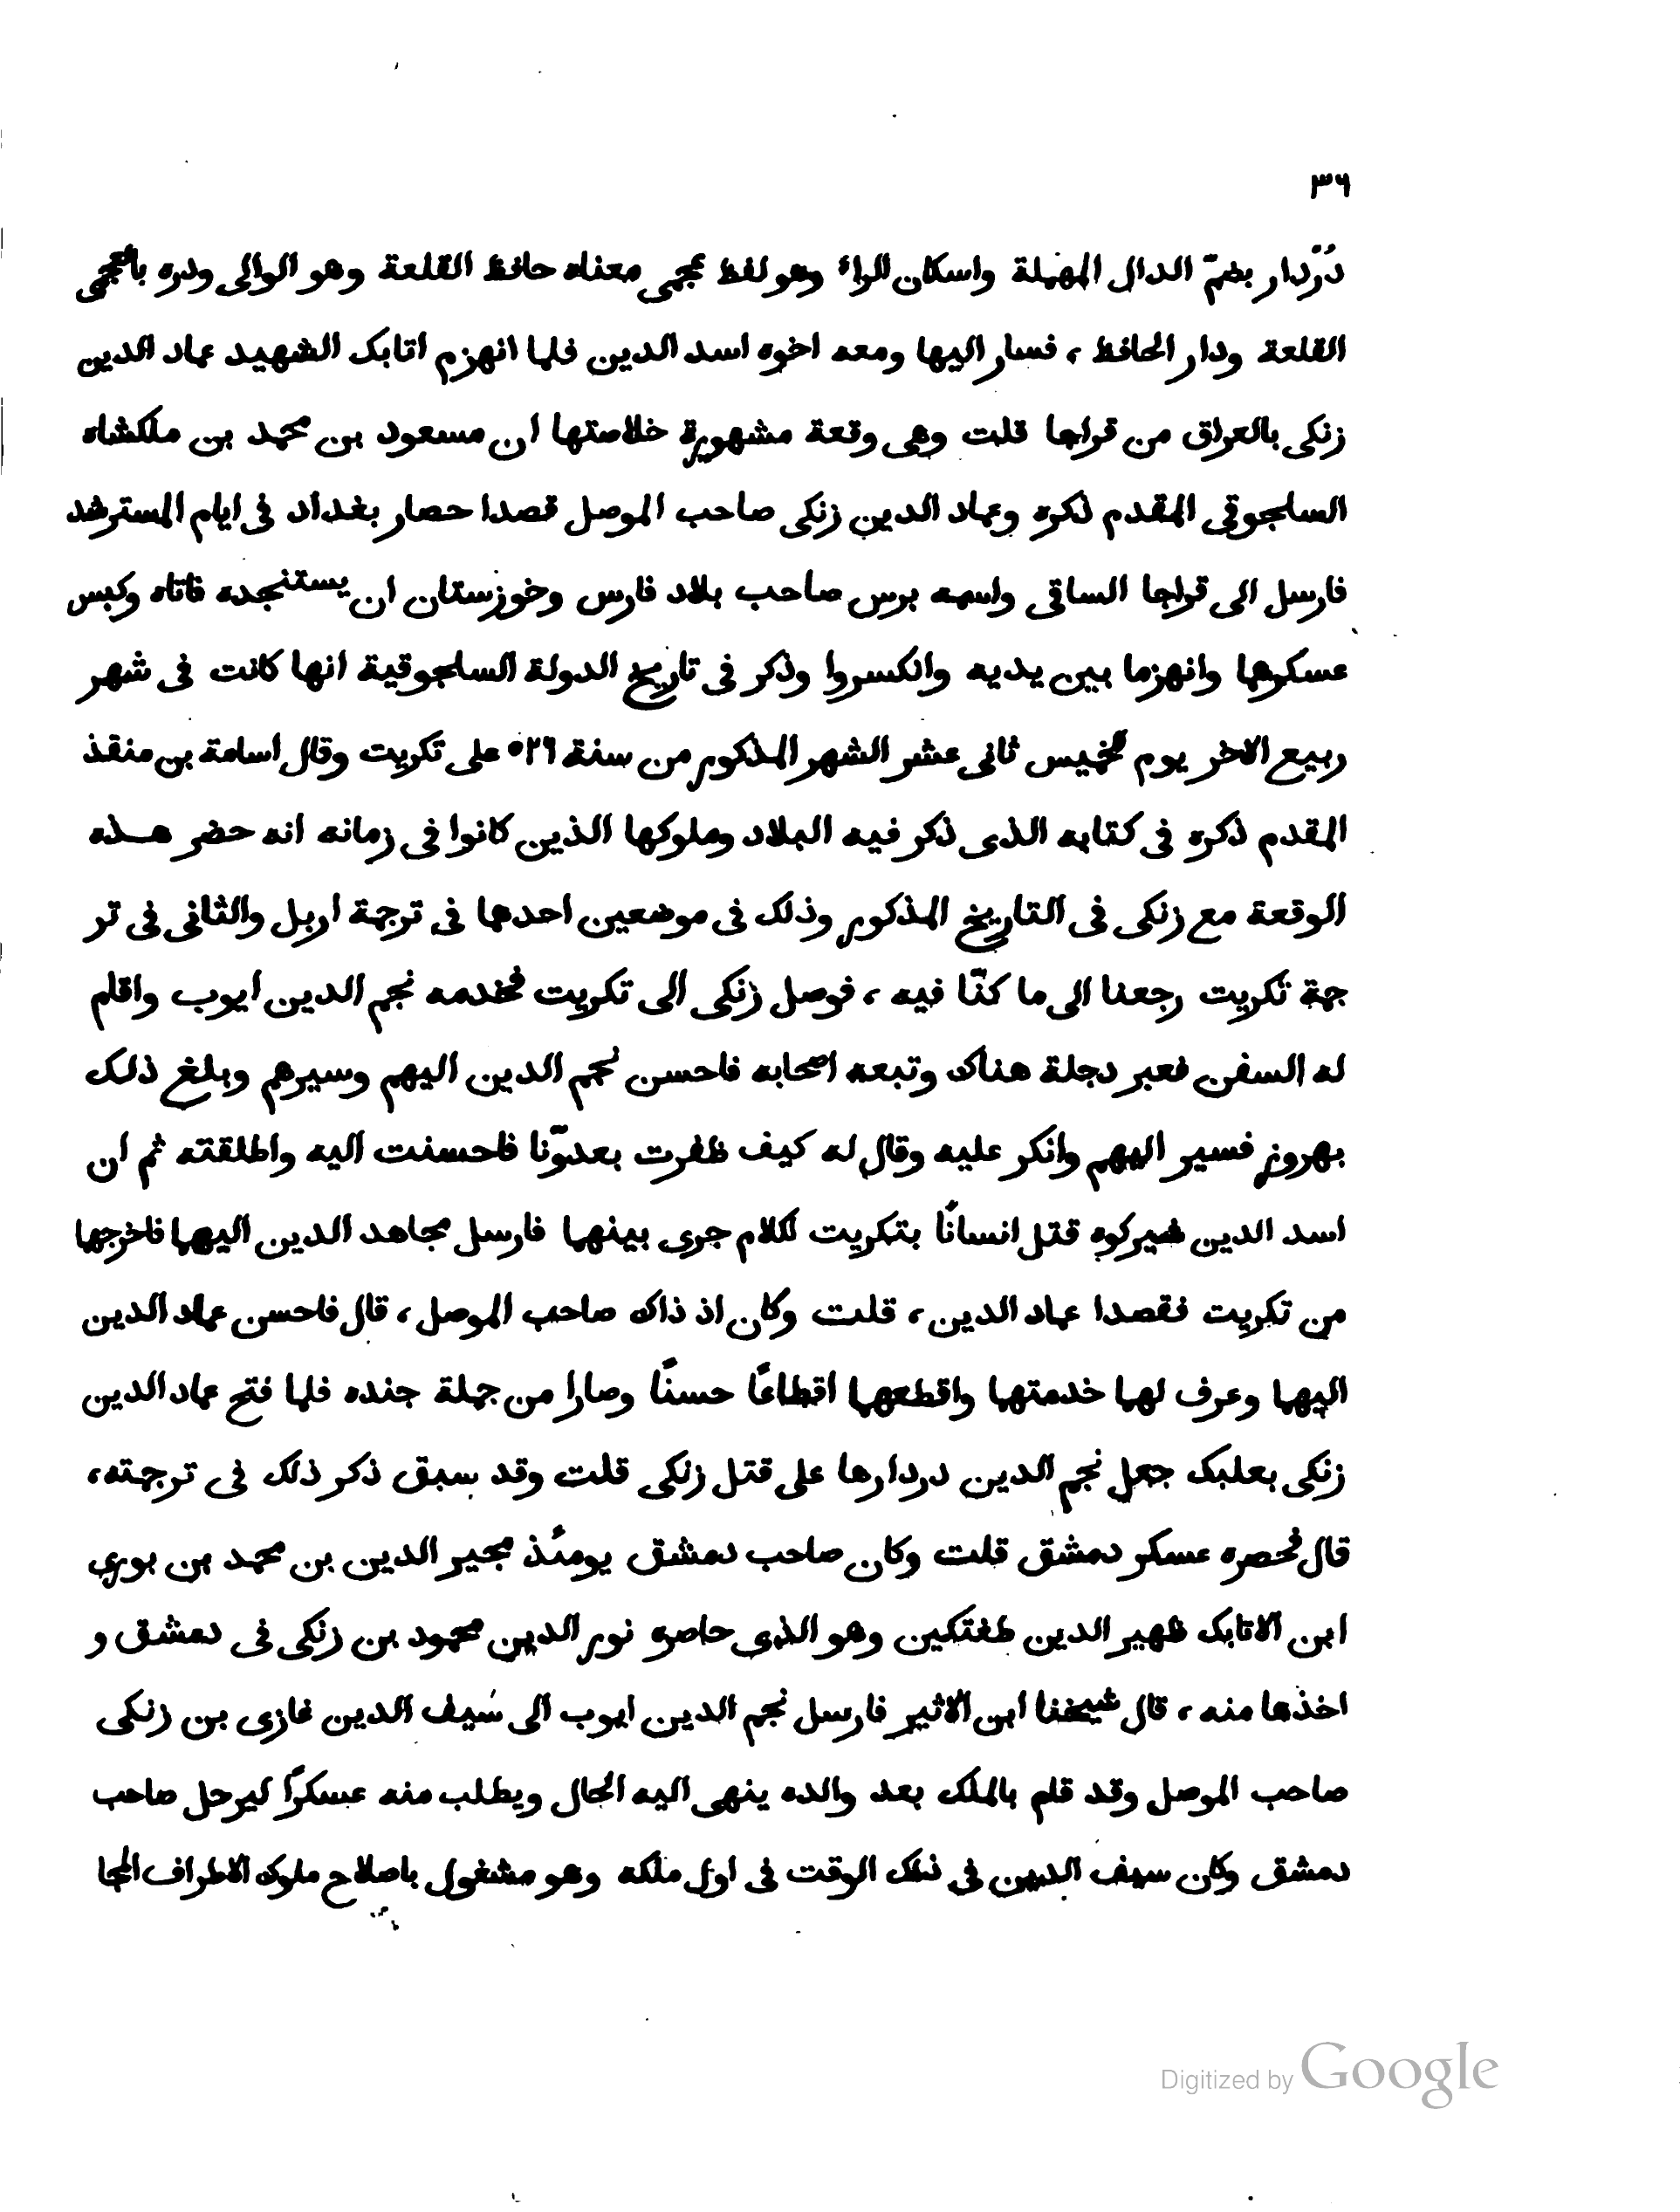 ٣٦
دُزْدار بضمّ الدال المهملة واسكان الراء وهو لفظ عجمى معناه حافظ القلعة وهو الوالى ودره بالعجمى
القلعة ودار الحافظ ، فسار اليها ومعه اخوه اسد الدين فلما انهزم اتابك الشهيد عماد الدين
زنكى بالعراق من قراجا قلت وهى وقعة مشهورة خلاصتها ان مسعود بن محمد بن ملكشاه
السلجوقى المقدم ذكره وعماد الدين زنكى صاحب الموصل قصدا حصار بغداد فى ايام المسترشد
فارسل الى قراجا الساقى واسمه برس صاحب بلاد فارس وخوزستان ان يستنجده فاتاه وكبس
عسكرهما وانهزما بين يديه وانكسروا وذكر فى تاريخ الدولة السلجوقية انها كانت فى شهر
ربيع الاخر يوم الخميس ثانى عشر الشهر المذكور من سنة ٥٢٦ على تكريت وقال اسامة بن منقذ
المقدم ذكره فى كتابه الذى ذكر فيه البلاد وملوكها الذين كانوا فى زمانه انه حضر هـذه
الوقعة مع زنكى فى التاريخ المذكور وذلك فى موضعين احدها فى ترجمة اربل والثانى فى تر
جمة تكريت رجعنا الى ما كنّا فيه ، فوصل زنكى الى تكريت فخدمه نجم الدين ايوب واقام
له السفن فعبر دجلة هناك وتبعه اصحابه فاحسن نجم الدين اليهم وسيرهم وبلغ ذلك
بهروز فسير اليهم وانكر عليه وقال له كيف ظفرت بعدوّنا فاحسنت اليه واطلقته ثم ان
اسد الدين شيركوه قتل انسانًا بتكريت لكلام جرى بينهما فارسل مجاهد الدين اليهما فاخرجهما
من تكريت فقصدا عماد الدين ، قلت وكان اذ ذاك صاحب الموصل ، قال فاحسن عماد الدين
اليهما وعرف لهما خدمتهما واقطعهما اقطاعًا حسنًا وصارا من جملة جنده فلما فتح عماد الدين
زنكى بعلبك جعل نجم الدين دردارها على قتل زنكى قلت وقد سبق ذكر ذلك فى ترجمته ،
قال فحصره عسكر دمشق قلت وكان صاحب دمشق يومئذ مجير الدين بن محمد بن بورى
ابن الاتابك ظهير الدين طغتكين وهو الذى حاصره نور الدين محمود بن زنكى فى دمشق و
اخذها منه ، قال شيخنا ابن الاثير فارسل نجم الدين ايوب الى سَيف الدين غازى بن زنكى
صاحب الموصل وقد قام بالملك بعد والده ينهى اليه الحال ويطلب منه عسكرًا ليرحل صاحب
دمشق وكان سيف الدين فى ذلك الوقت فى اول ملكه وهو مشغول باصلاح ملوك الاطراف المجا
Digitized by Google